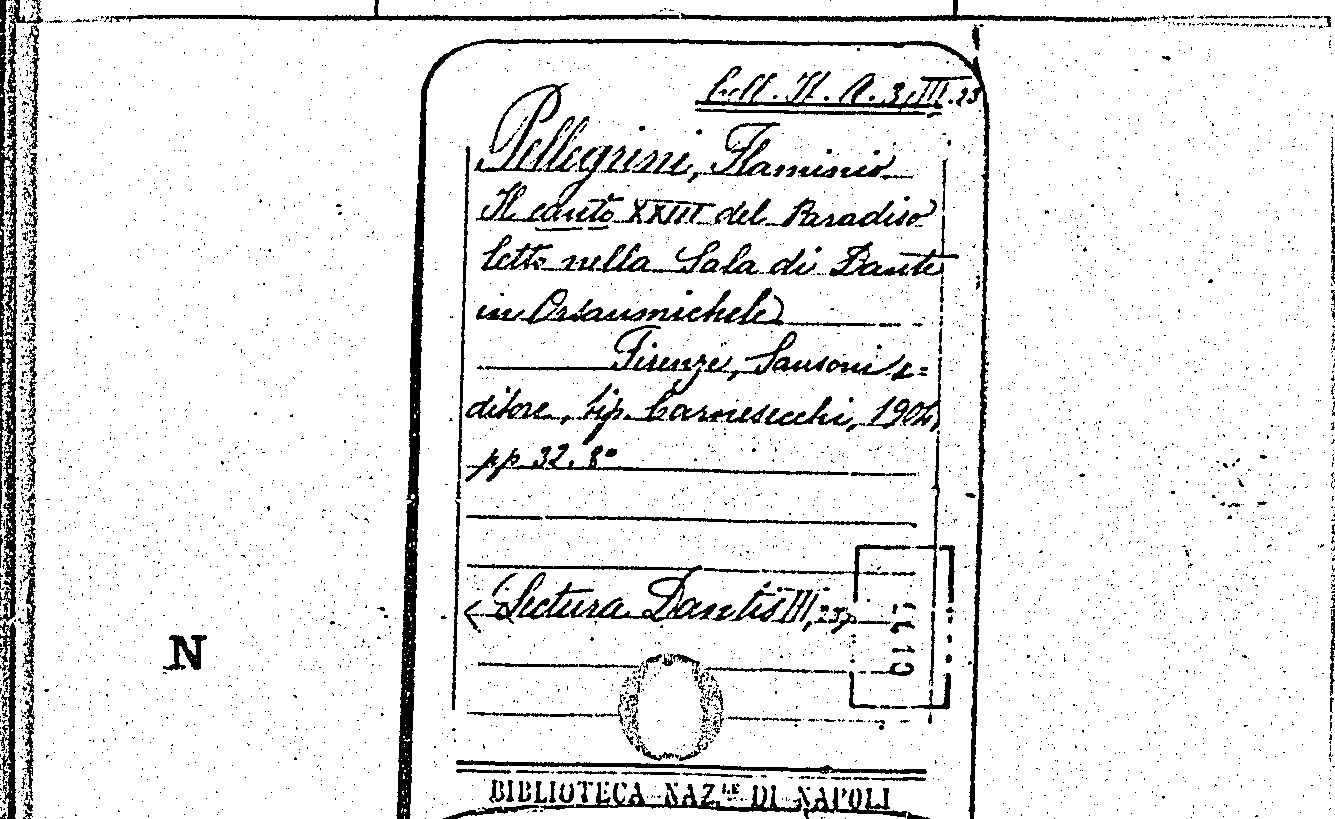 Coll. It. A. 3, III. 23
Pellegrini, Flaminio
Il canto XXIII del Paradiso
letto nella Sala di Dante
in Orsanmichele
Firenze, Sansoni e-
ditore, tip. Carnesecchi, 1904,
pp 32. 8°
< Lectura Dantis III, 23>
N
BIBLIOTECA NAZ.LE DI NAPOLI